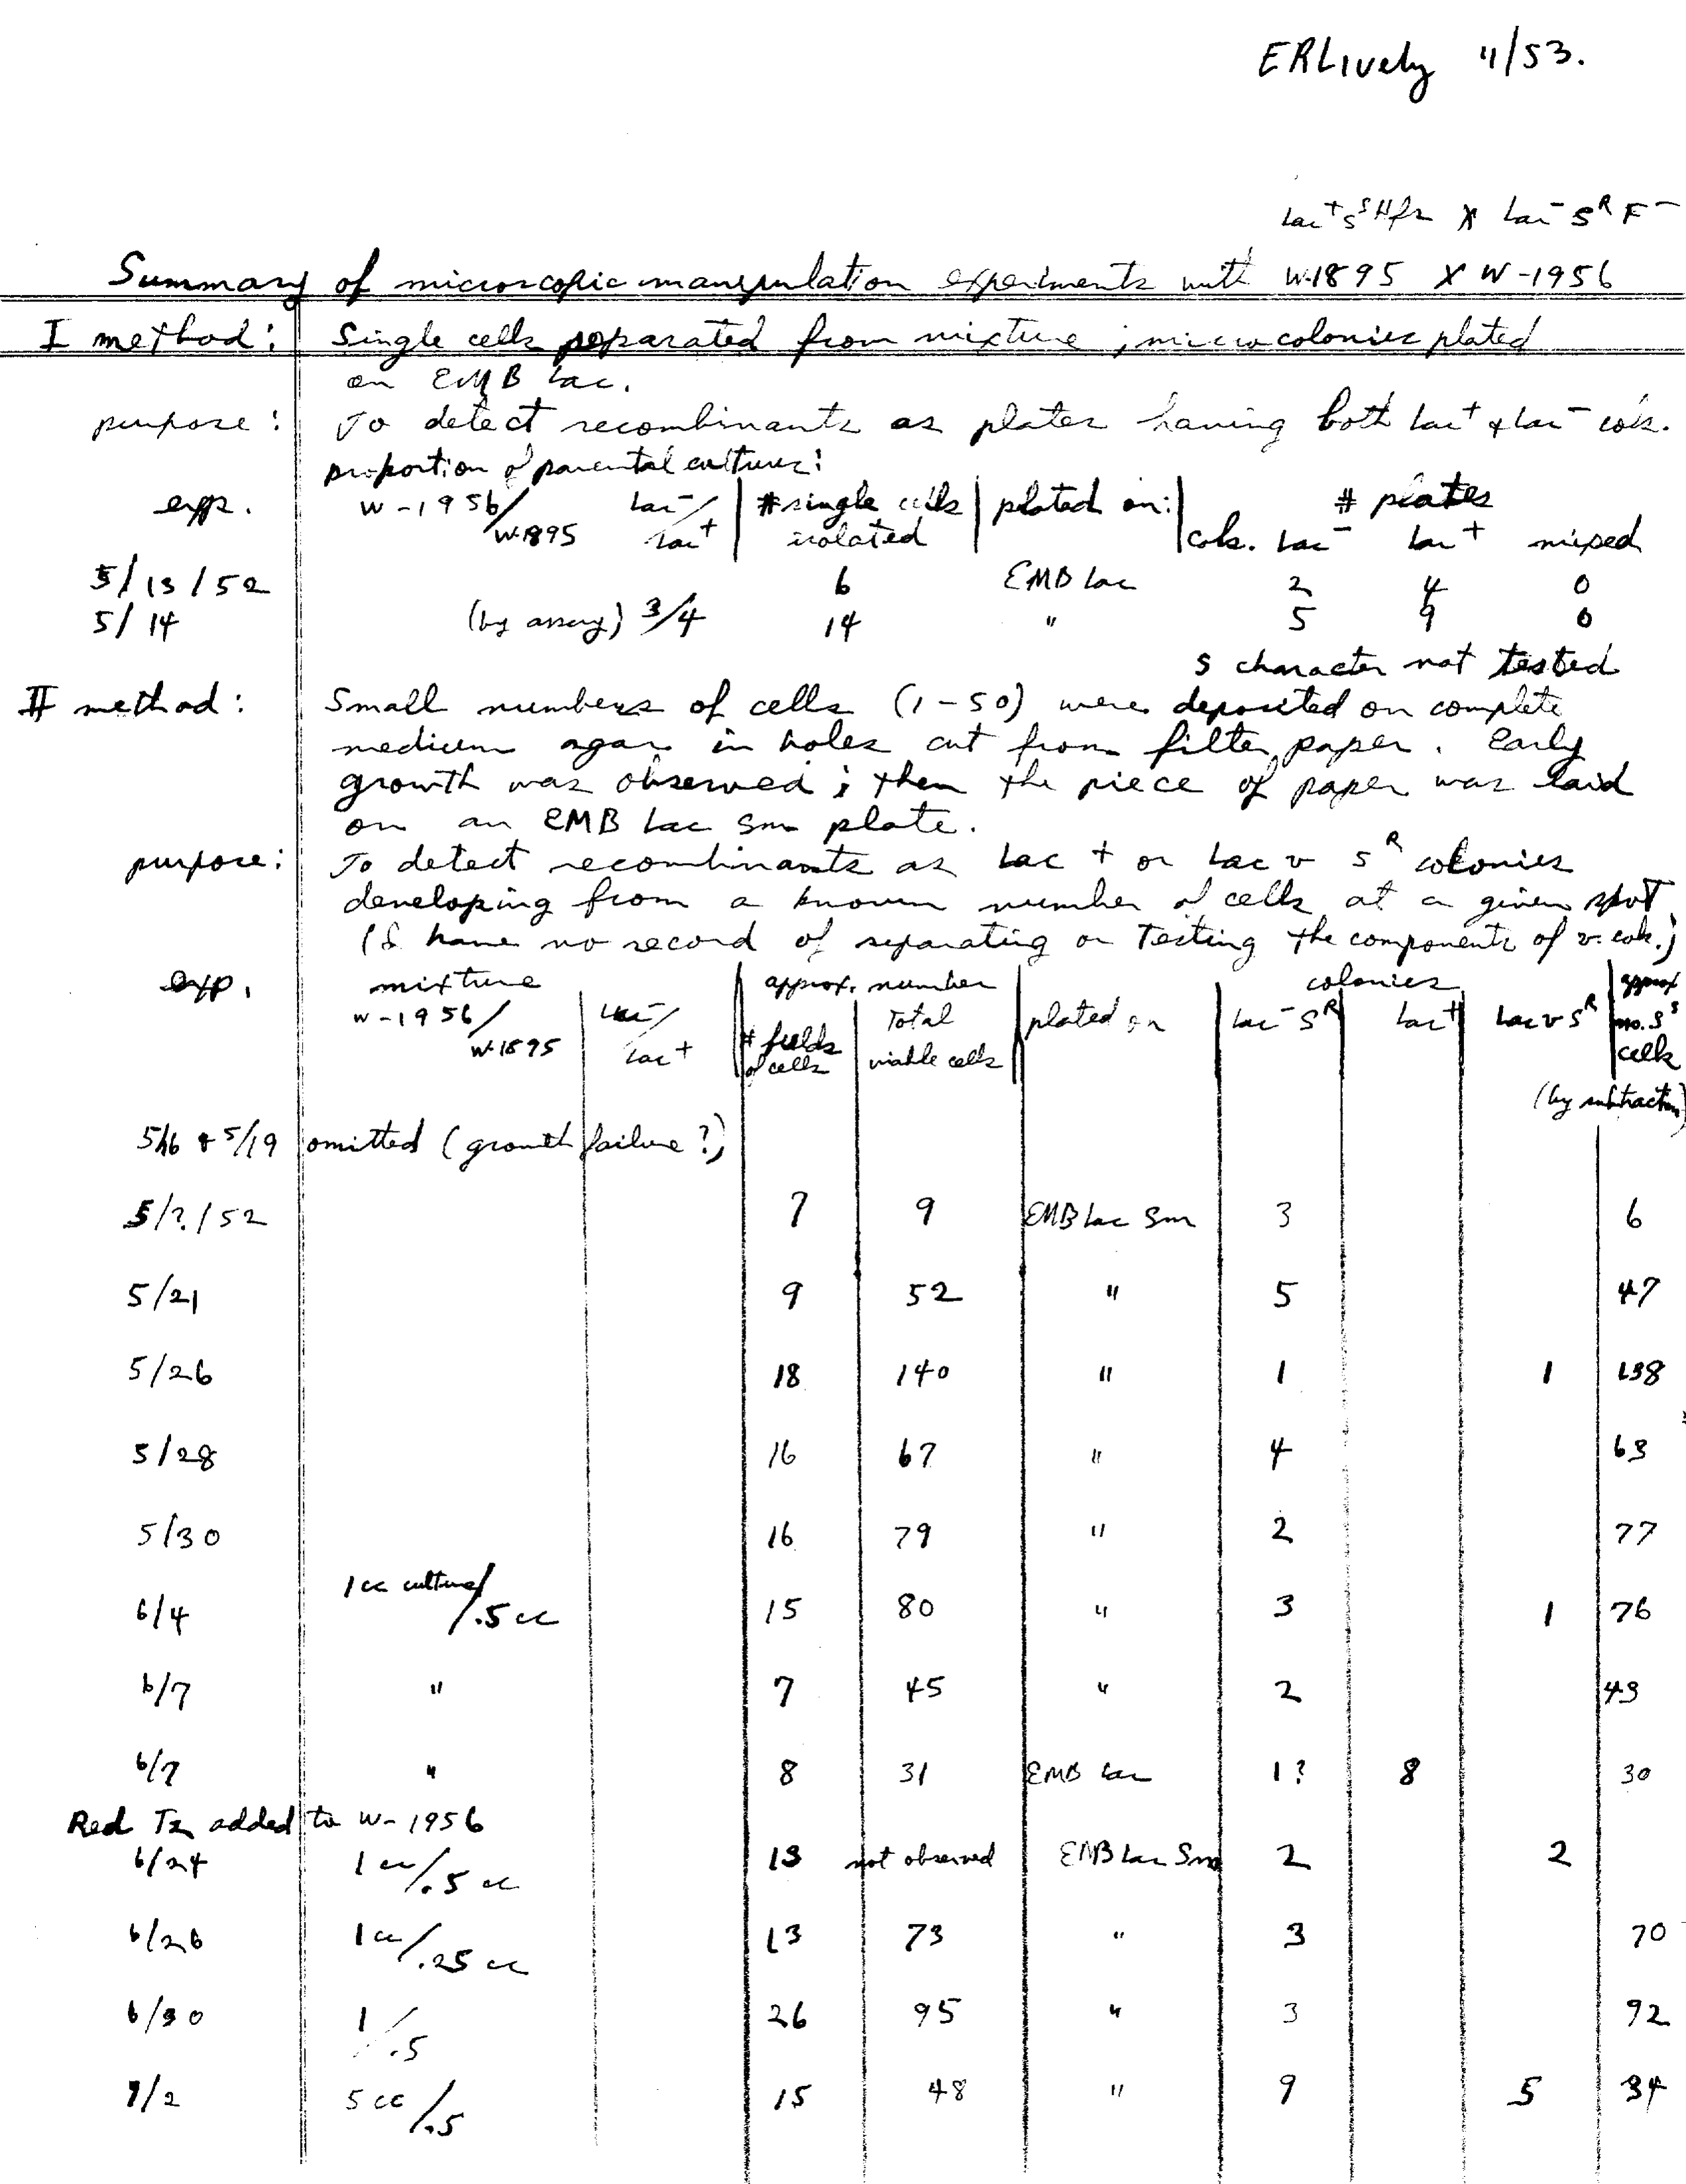 ERLively 11/53.
Lac+ S^S Hfr X Lac- S^R F-
Summary of microscopic manipulation experiments with W-1895 X W-1956
I method: Single cells separated from mixture; microcolonies plated
on EMB Lac.
purpose: To detect recombinants as plates having both Lac+ & Lac- cols.
proportion of parental cultures:
exp. W-1956/W-1895 Lac-/Lac+ # single cells isolated plated on: # plates
cols. Lac- Lac+ mixed
5/13/52 6 EMB Lac 2 4 0
5/14 (by assay) 3/4 14 " 5 9 0
S character not tested
II method: Small numbers of cells (1-50) were deposited on complete
medium agar in holes cut from filter paper. Early
growth was observed; then the piece of paper was laid
on an EMB Lac Sm plate.
purpose: To detect recombinants as Lac + or Lac v S^R colonies
developing from a known number of cells at a given spot
(I have no record of separating or testing the components of v. cols.)
exp. mixture approx. number colonies approx
W-1956/W-1895 Lac-/Lac+ # fields of cells Total viable cells plated on Lac- S^R Lac+ Lac v S^R no. S^S cells
(by subtraction)
5/16 & 5/19 omitted (growth failure?)
5/?/52 7 9 EMB Lac Sm 3 6
5/21 9 52 " 5 47
5/26 18 140 " 1 1 138
5/28 16 67 " 4 63
5/30 16 79 " 2 77
6/4 1 cc culture/.5 cc 15 80 " 3 1 76
6/7 " 7 45 " 2 43
6/7 " 8 31 EMB Lac 1? 8 30
Red Tz added to W-1956
6/24 1 cc/.5 cc 13 not observed EMB Lac Sm 2 2
6/26 1 cc/.25 cc 13 73 " 3 70
6/30 1/.5 26 95 " 3 92
7/2 5 cc/.5 15 48 " 9 5 34